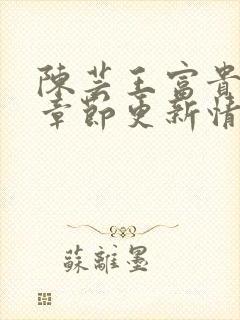 陳芸王富貴
章節更新情
蘇離墨